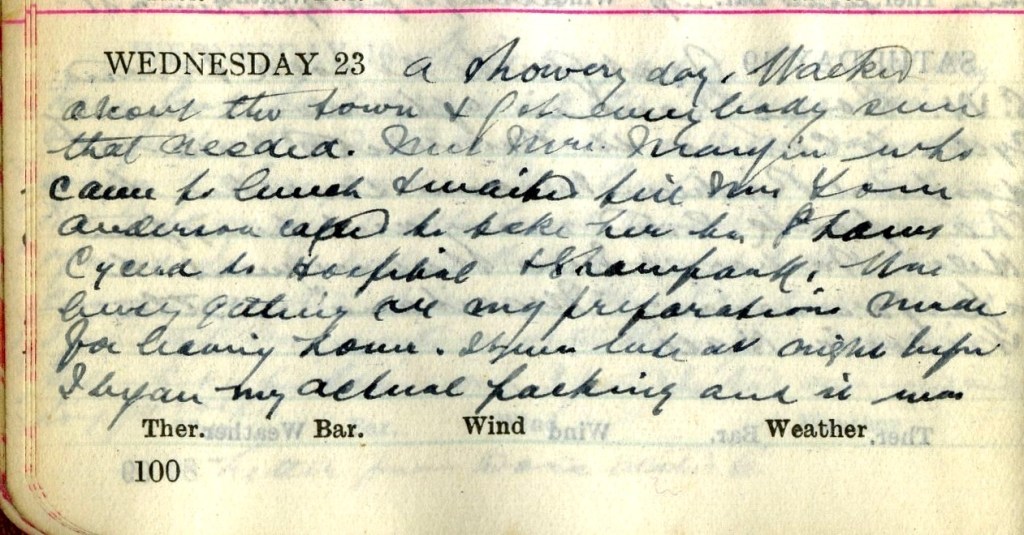 WEDNESDAY 23 A showery day. Walked
about the town & got everybody seen
that needed. Met Mrs. who
came to lunch & waited till Mrs Tom
Anderson called to take her home
Cycled to Hospital & . Was
busy getting all my preparations made
for leaving home. It was late at night before
I began my actual packing and it was
Ther. Bar. Wind Weather
100